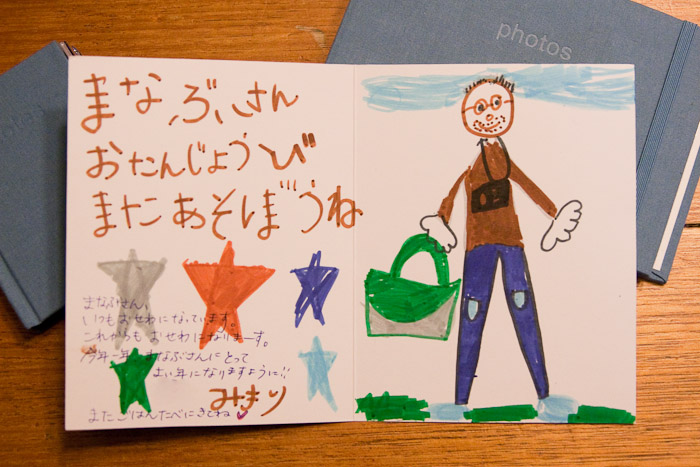 photos
まなぶさん
おたんじょうび
またあそぼうね
まなぶさん、
いつもおせわになっています。
これからもおせわになりまーす。
今年一年、まなぶさんにとって
よい年になりますように!!
みきり
またごはんたべにきてね